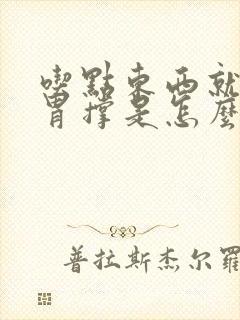 喫點東西就
胃撐是怎麼
普拉斯杰尔羅